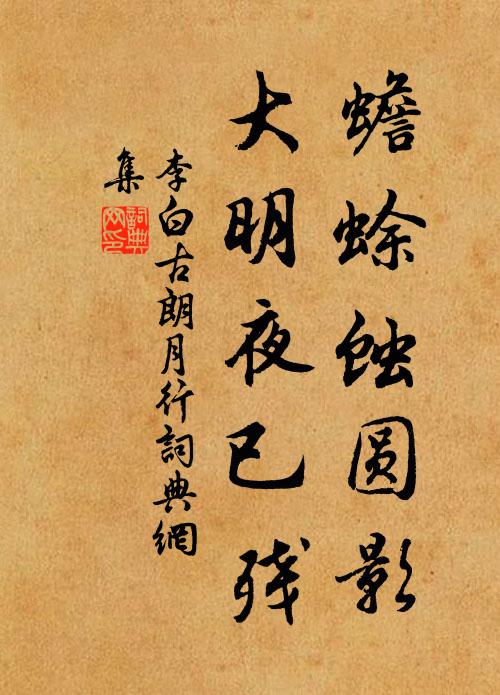 蟾蜍蚀圆影
大明夜已残
李白古朗月行詞典網
集
詞典
网印